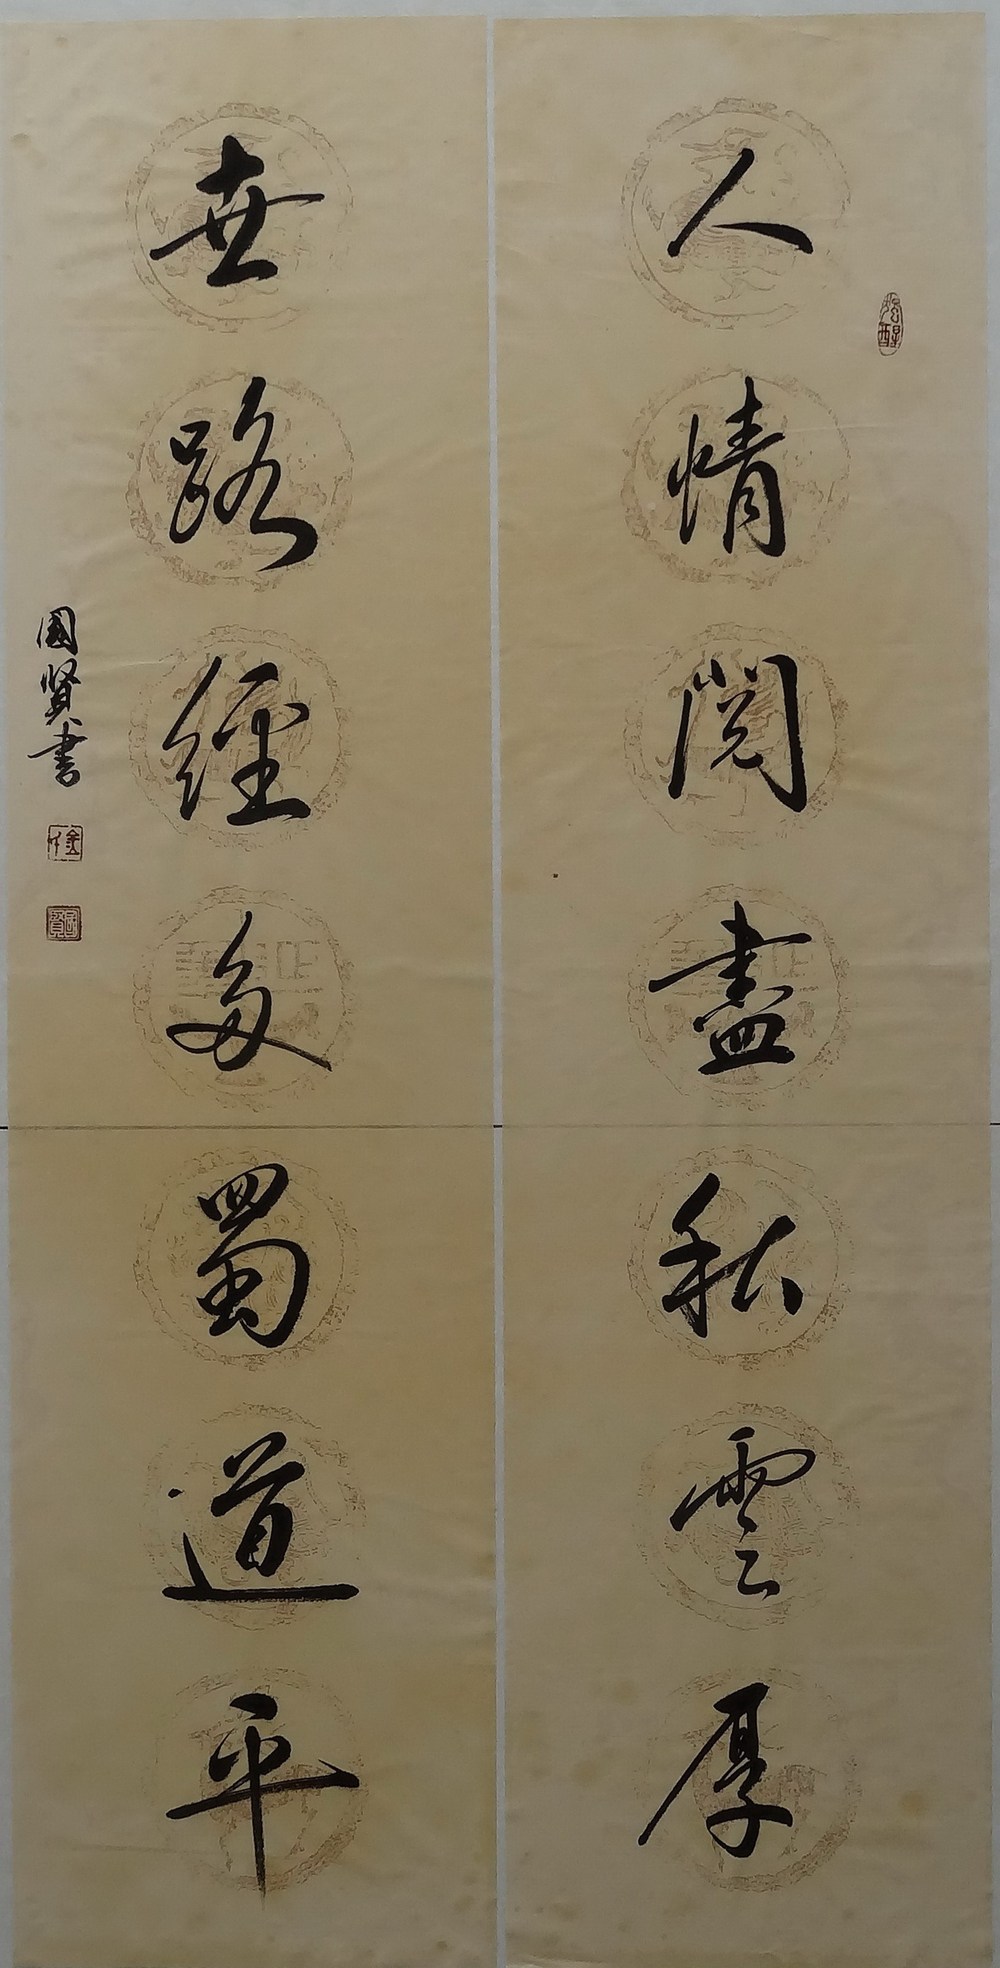 人情閱盡秋雲厚
世路經多蜀道平
國賢書
國賢